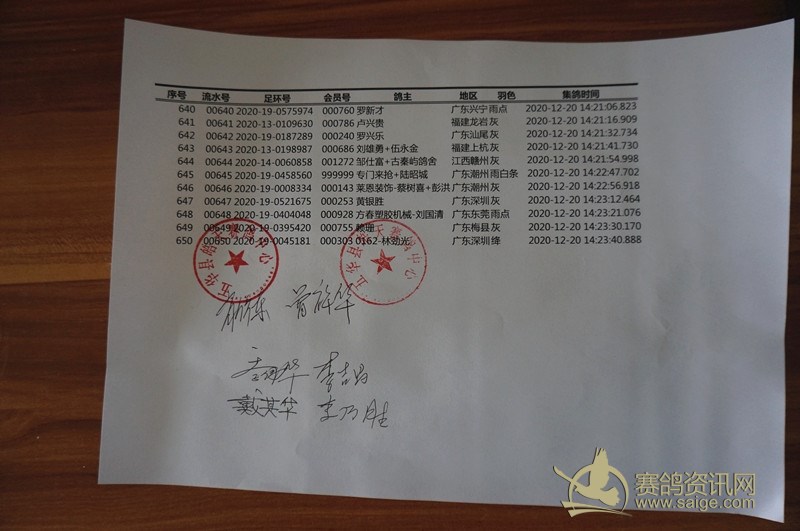 序号 流水号 足环号 会员号 鸽主 地区 羽色 集鸽时间
640 00640 2020-19-0575974 000760 罗新才 广东兴宁 雨点 2020-12-20 14:21:06.823
641 00641 2020-13-0109630 000786 卢兴贵 福建龙岩 灰 2020-12-20 14:21:16.909
642 00642 2020-19-0187289 000240 罗兴乐 广东汕尾 灰 2020-12-20 14:21:32.734
643 00643 2020-13-0198987 000686 刘雄勇+伍永金 福建上杭 灰 2020-12-20 14:21:41.730
644 00644 2020-14-0060858 001272 邹仕富+古秦屿鸽舍 江西赣州 灰 2020-12-20 14:21:54.998
645 00645 2020-19-0458560 999999 专门来抢+陆昭城 广东潮州 雨白条 2020-12-20 14:22:47.702
646 00646 2020-19-0008334 000143 莱恩装饰-蔡树喜+彭洪 广东潮州 灰 2020-12-20 14:22:56.918
647 00647 2020-19-0521675 000253 黄银胜 广东深圳 灰 2020-12-20 14:23:12.464
648 00648 2020-19-0404048 000928 方春塑胶机械-刘国清 广东东莞 雨点 2020-12-20 14:23:21.076
649 00649 2020-19-0395420 000755 赖珊 广东梅县 灰 2020-12-20 14:23:30.170
650 00650 2020-19-0045181 000303 0162-林劲光 广东深圳 绛 2020-12-20 14:23:40.888
五华县皓天赛鸽中心
五华县皓天赛鸽中心
曾祥华
李吉昌
戴其华 李乃胜
赛鸽资讯网
www.saige.com